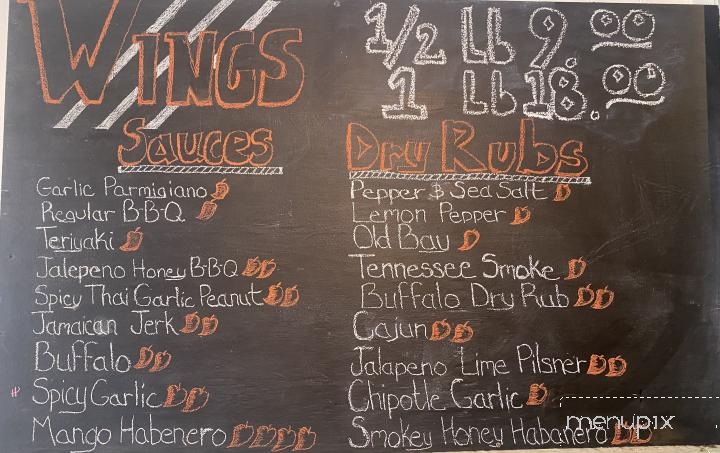 Wings
1/2 Lb 9.00
1 Lb 18.00
Sauces
Garlic Parmigiano
Regular B·B·Q
Teriyaki
Jalepeno Honey B·B·Q
Spicy Thai Garlic Peanut
Jamaican Jerk
Buffalo
Spicy Garlic
Mango Habenero
Dry Rubs
Pepper & Sea Salt
Lemon Pepper
Old Bay
Tennessee Smoke
Buffalo Dry Rub
Cajun
Jalapeno Lime Pilsner
Chipotle Garlic
Smokey Honey Habanero
menupix